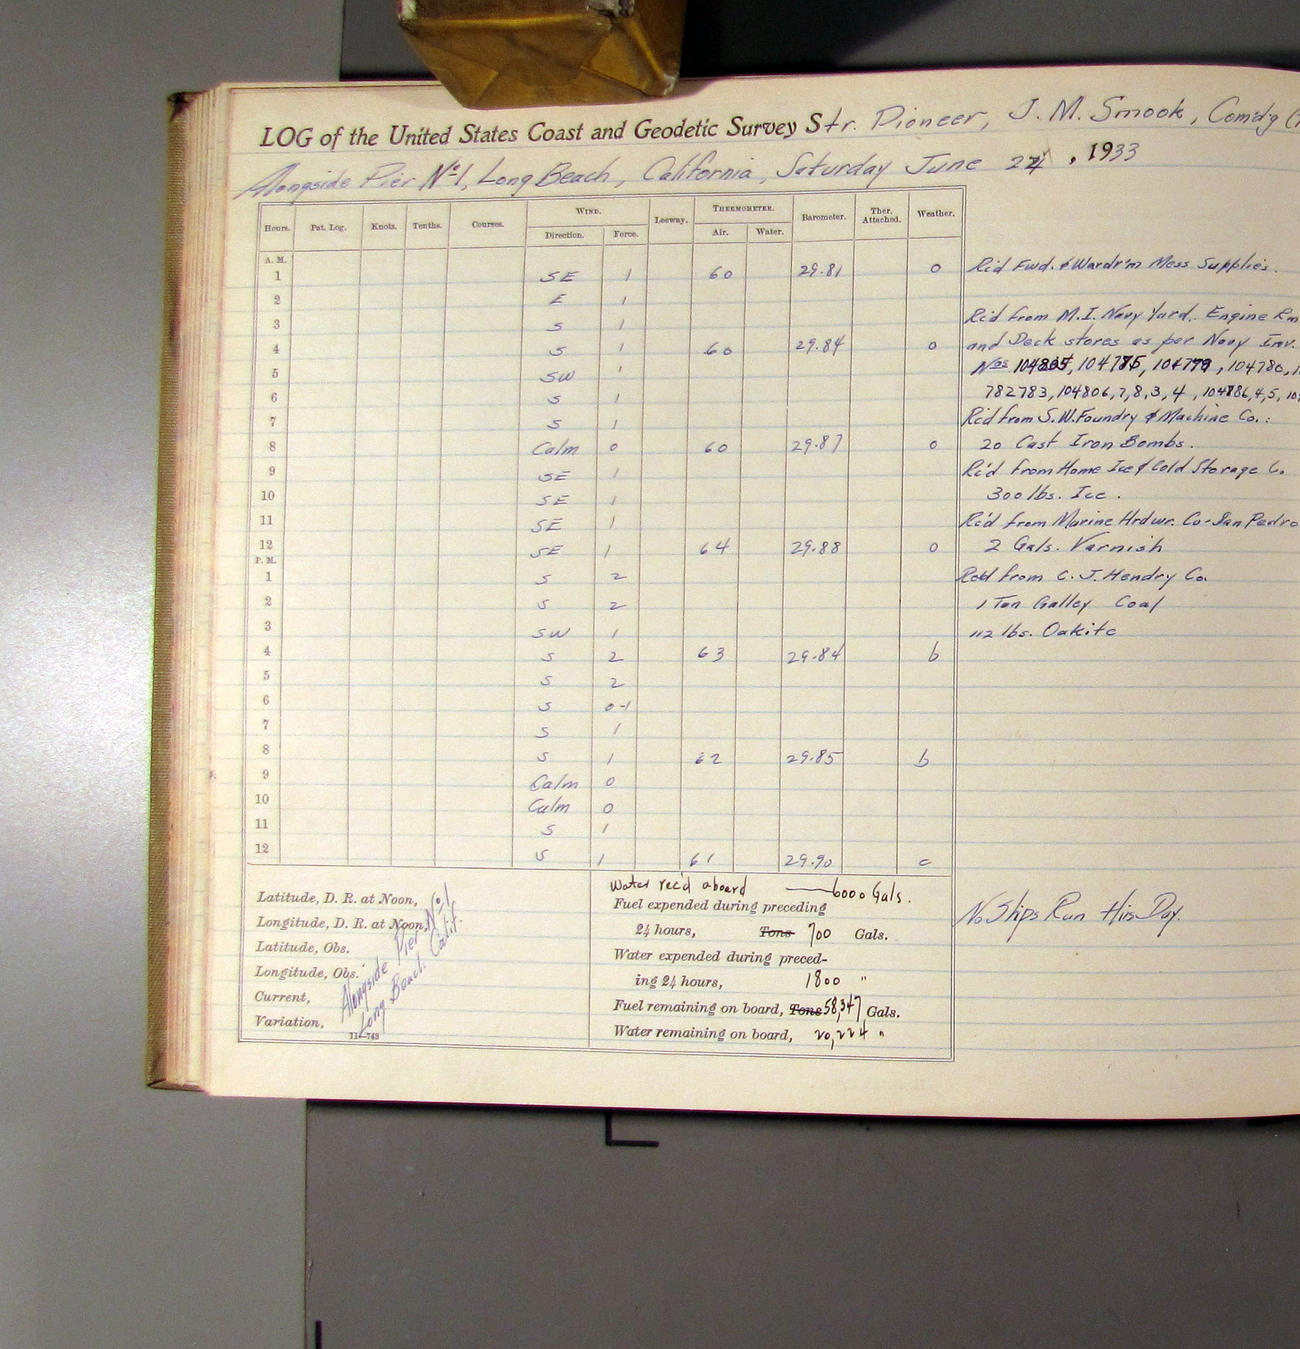 LOG of the United States Coast and Geodetic Survey Str. Pioneer, J. M. Smook, Com'd'g
Alongside Pier No 1, Long Beach, California, Saturday June 24, 1933
Hours. Pat. Log. Knots. Tenths. Courses. WIND. Direction. Force. Leeway. THERMOMETER. Air. Water. Barometer. Ther. Attached. Weather.
A. M.
1 SE 1 60 29.81 o Rc'd Fwd. & Wardr'm Mess Supplies.
2 E 1
3 S 1 Rc'd from M.I. Navy Yard. Engine Rm
4 S 1 60 29.84 o and Deck stores as per Navy Inv.
5 SW 1 Nos 104775, 104779, 104780,
6 S 1 782783, 104806, 7, 8, 3, 4, 104786, 4, 5,
7 S 1 Rc'd from S.W. Foundry & Machine Co.:
8 Calm 0 60 29.87 o 20 Cast Iron Bombs.
9 SE 1 Rc'd from Home Ice & Cold Storage Co.
10 SE 1 300 lbs. Ice.
11 SE 1 Rc'd from Marine Hrdwr. Co - San Pedro
12 SE 1 64 29.88 o 2 Gals. Varnish
P. M.
1 S 2 Rc'd from C. J. Hendry Co.
2 S 2 1 Ton Galley Coal
3 SW 1 112 lbs. Oakite
4 S 2 63 29.84 b
5 S 2
6 S 0-1
7 S 1
8 S 1 62 29.85 b
9 Calm 0
10 Calm 0
11 S 1
12 S 1 61 29.90 c
Latitude, D. R. at Noon,
Longitude, D. R. at Noon,
Latitude, Obs.
Longitude, Obs.
Current,
Variation,
Alongside Pier No 1
Long Beach, Calif.
11—743
Water rec'd aboard — 6000 Gals.
Fuel expended during preceding
24 hours, Tons 700 Gals.
Water expended during preced-
ing 24 hours, 1800 "
Fuel remaining on board, Tons 58,347 Gals.
Water remaining on board, 20,224 "
No Ships Run This Day.